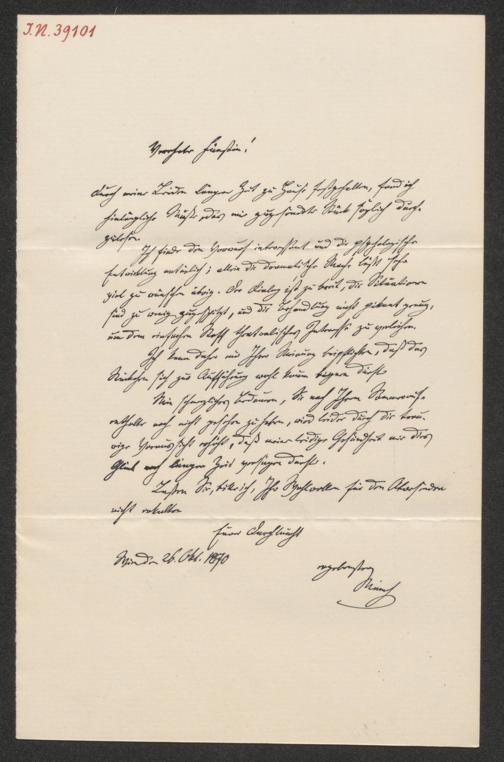 J.N. 39101
Verehrte Fürstin!
Durch meine Leiden längere Zeit zu Hause festgehalten, fand ich
hinlängliche Muße, das mir zugesandte Stück sogleich durch-
zulesen.
Ich finde den Vorwurf interessant und die psychologische
Entwicklung natürlich; allein die dramatische Mache läßt sehr
viel zu wünschen übrig. Der Dialog ist zu breit, die Situationen
sind zu wenig zugespitzt, und die Behandlung nicht pikant genug,
um dem einfachen Stoff theatralisches Interesse zu verleihen.
Ich kann daher nur Ihrer Meinung beipflichten, daß das
Stückchen sich zur Aufführung wohl kaum eignen dürfte.
Mein schmerzliches Bedauern, Sie nach Ihrem Sommerauf-
enthalte noch nicht gesehen zu haben, wird leider durch die trau-
rige Voraussicht erhöht, daß meine leidige Gesundheit mir dies
Glück noch längere Zeit versagen dürfte.
Lassen Sie, bitte ich, Ihr Wohlwollen für den Abwesenden
nicht erkalten
Euer Durchlaucht
Wien den 26. Okt. 1870
ergebenster